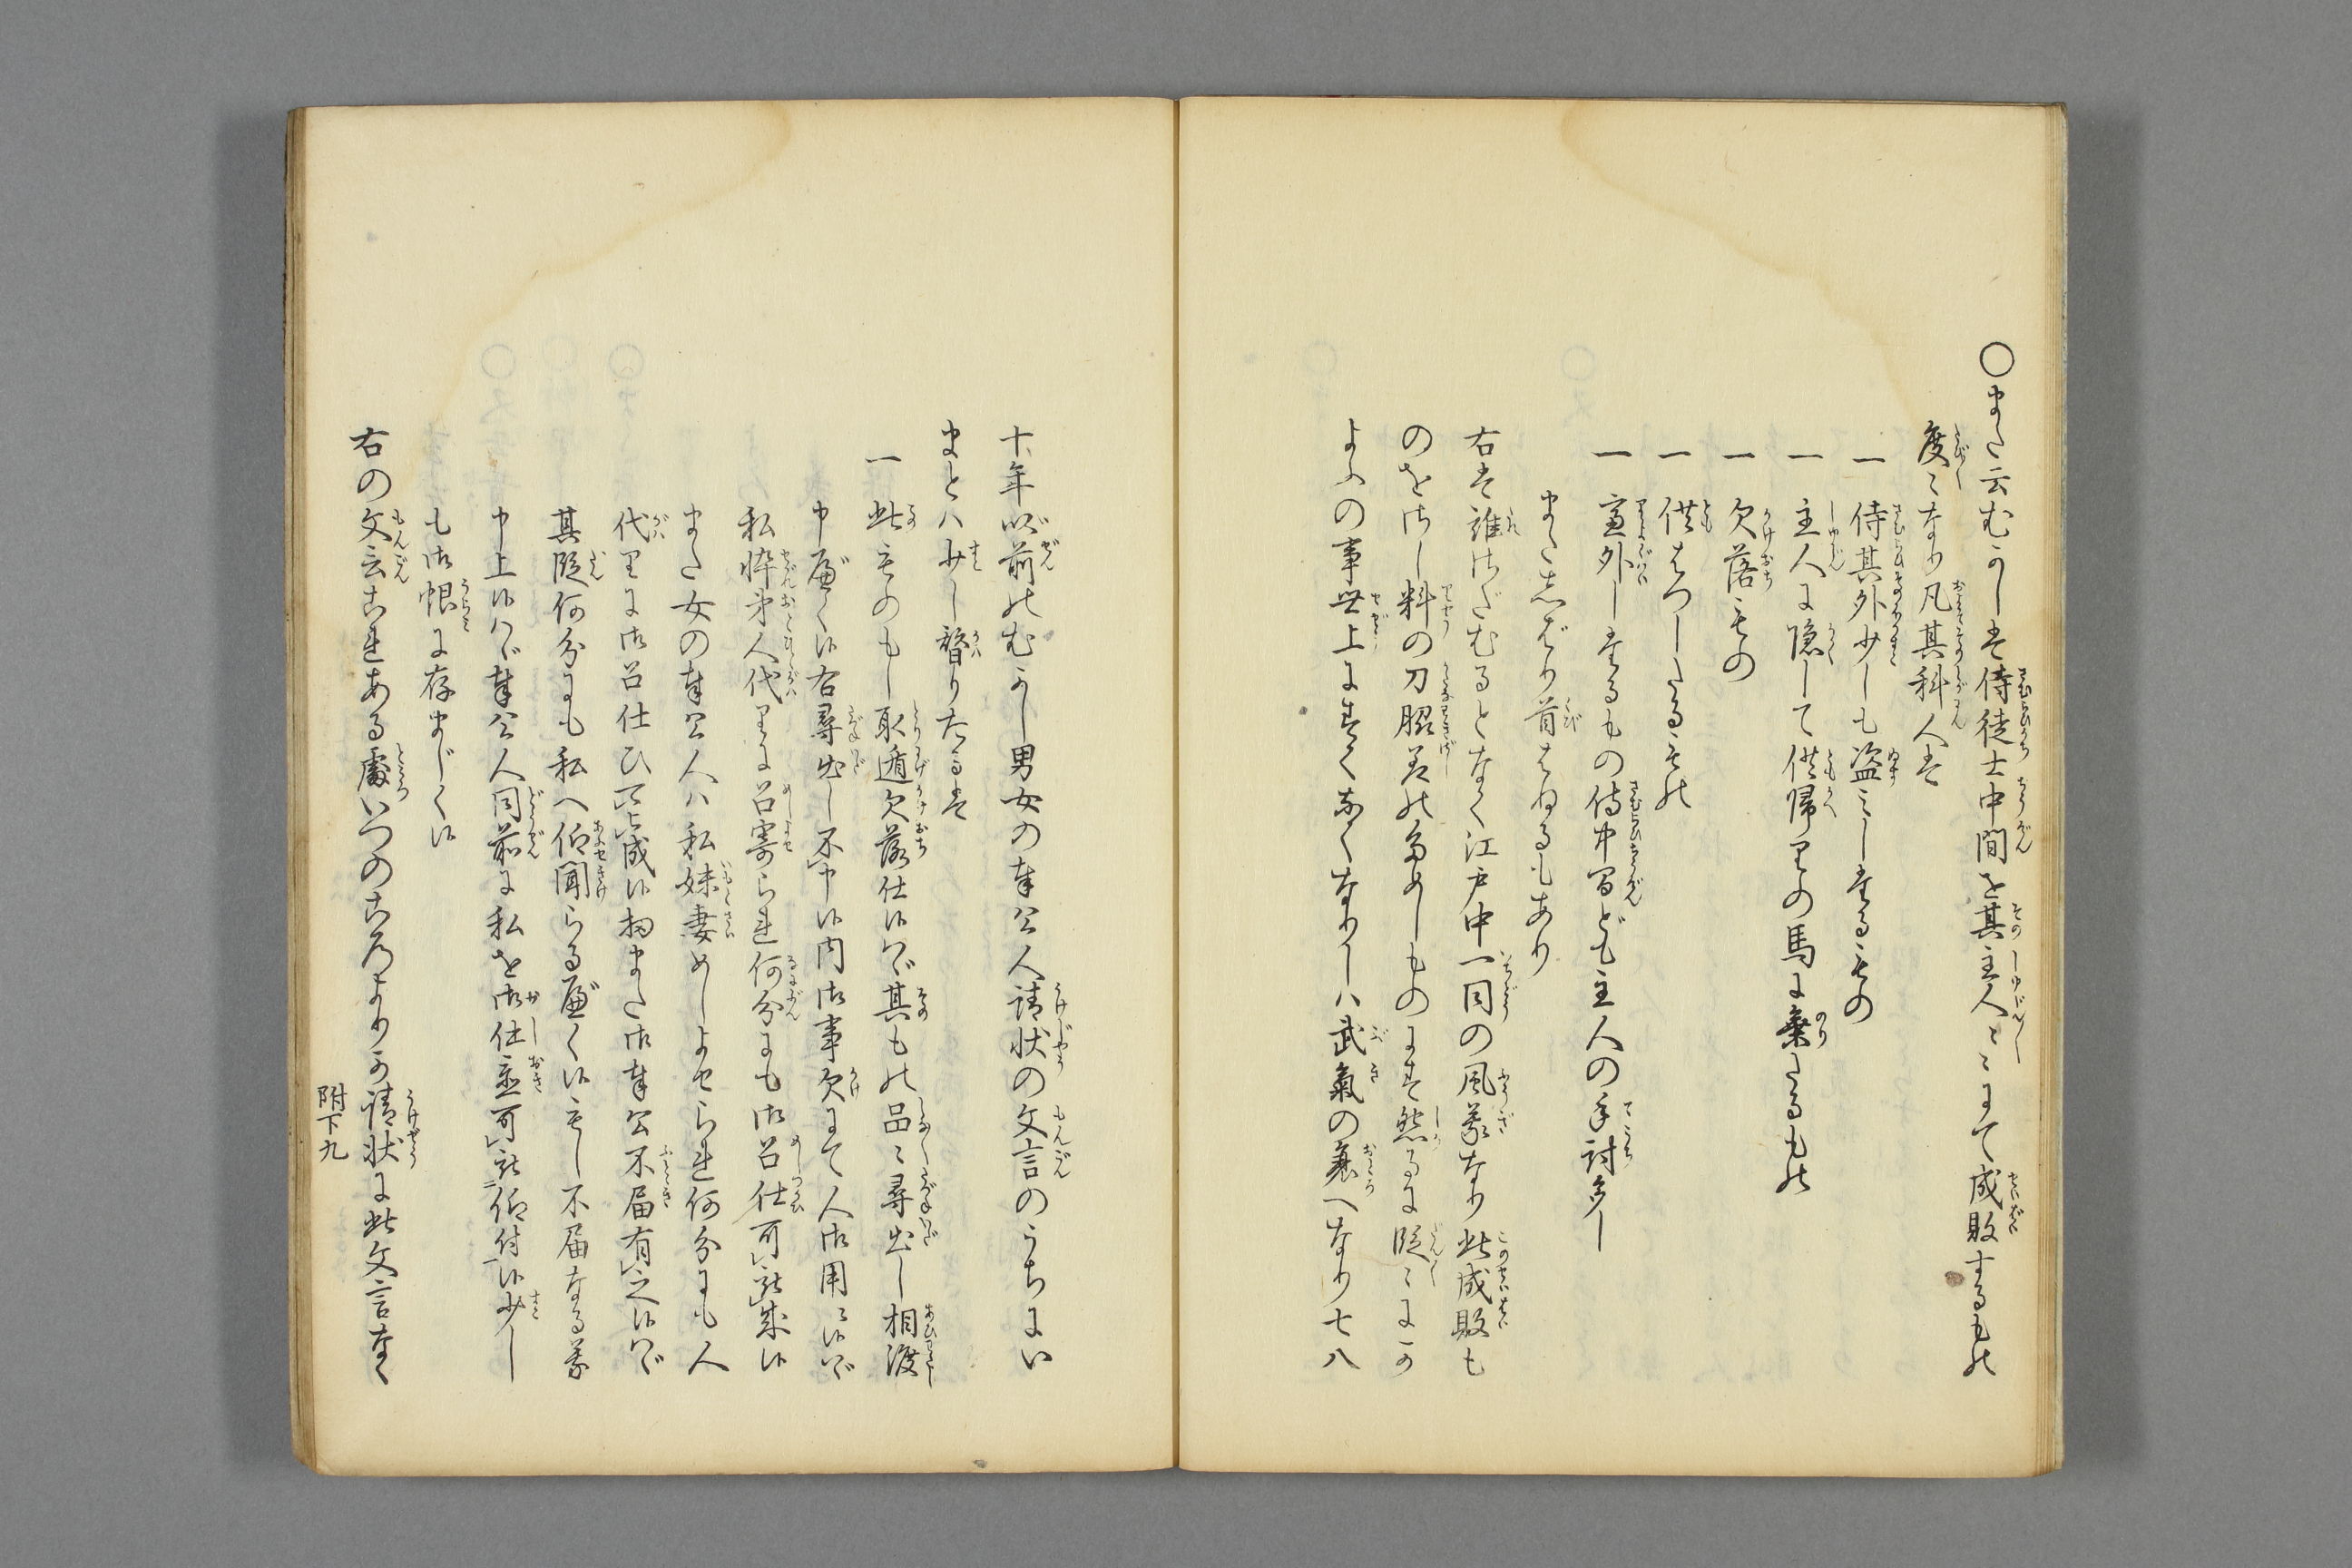 〇また云むかしは侍徒士中間を其主人〻にて成敗するもの
度〻なり凡其科人は
一 侍其外少しも盗みしたるもの
一 主人に隠して供帰りの馬に乗たるもの
一 欠落もの
一 供はづしたるもの
一 慮外したるもの侍中間ども主人の手討多し
またしばり首はねるもあり
右は誰はじむるとなく江戸中一同の風義なり此成敗も
のをはし料の刀脇差のためしものにす然るに段〻にか
よふの事世上にすくなくなりしハ武氣の衰へなり七八
十年以前のむかし男女の奉公人請状の文言のうちにい
まとハ少し替りたるは
一 此ものもし取逃欠落仕候ハヾ其もの品〻尋出し相渡
申べく候右尋出し不申候内御事欠にて人御用に候ハヾ
私忰弟人代りに召寄られ何分にも御召仕可被成候
また女の奉公人ハ私妹妻めしよせられ何分にも人
代りに御召仕ひ可被成候扨また御奉公不届有之候ハヾ
其段何分にも私へ仰聞らるべく候もし不届なる義
申上候ハヾ奉公人同前に私を御仕置可被仰付候少し
も御恨に存まじく候
右の文言これある處いつのころよりか請状に此文言なく
附下九